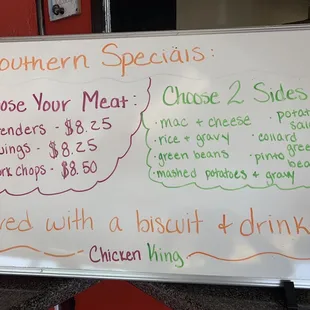 outhern Specials:
ose Your Meat:
enders - $8.25
ings - $8.25
rk chops - $8.50
Choose 2 Sides
• mac + cheese
• rice + gravy
• green beans
• mashed potatoes + gravy
• potat
sala
• collard
gree
• pinto
bea
ved with a biscuit + drink
Chicken King